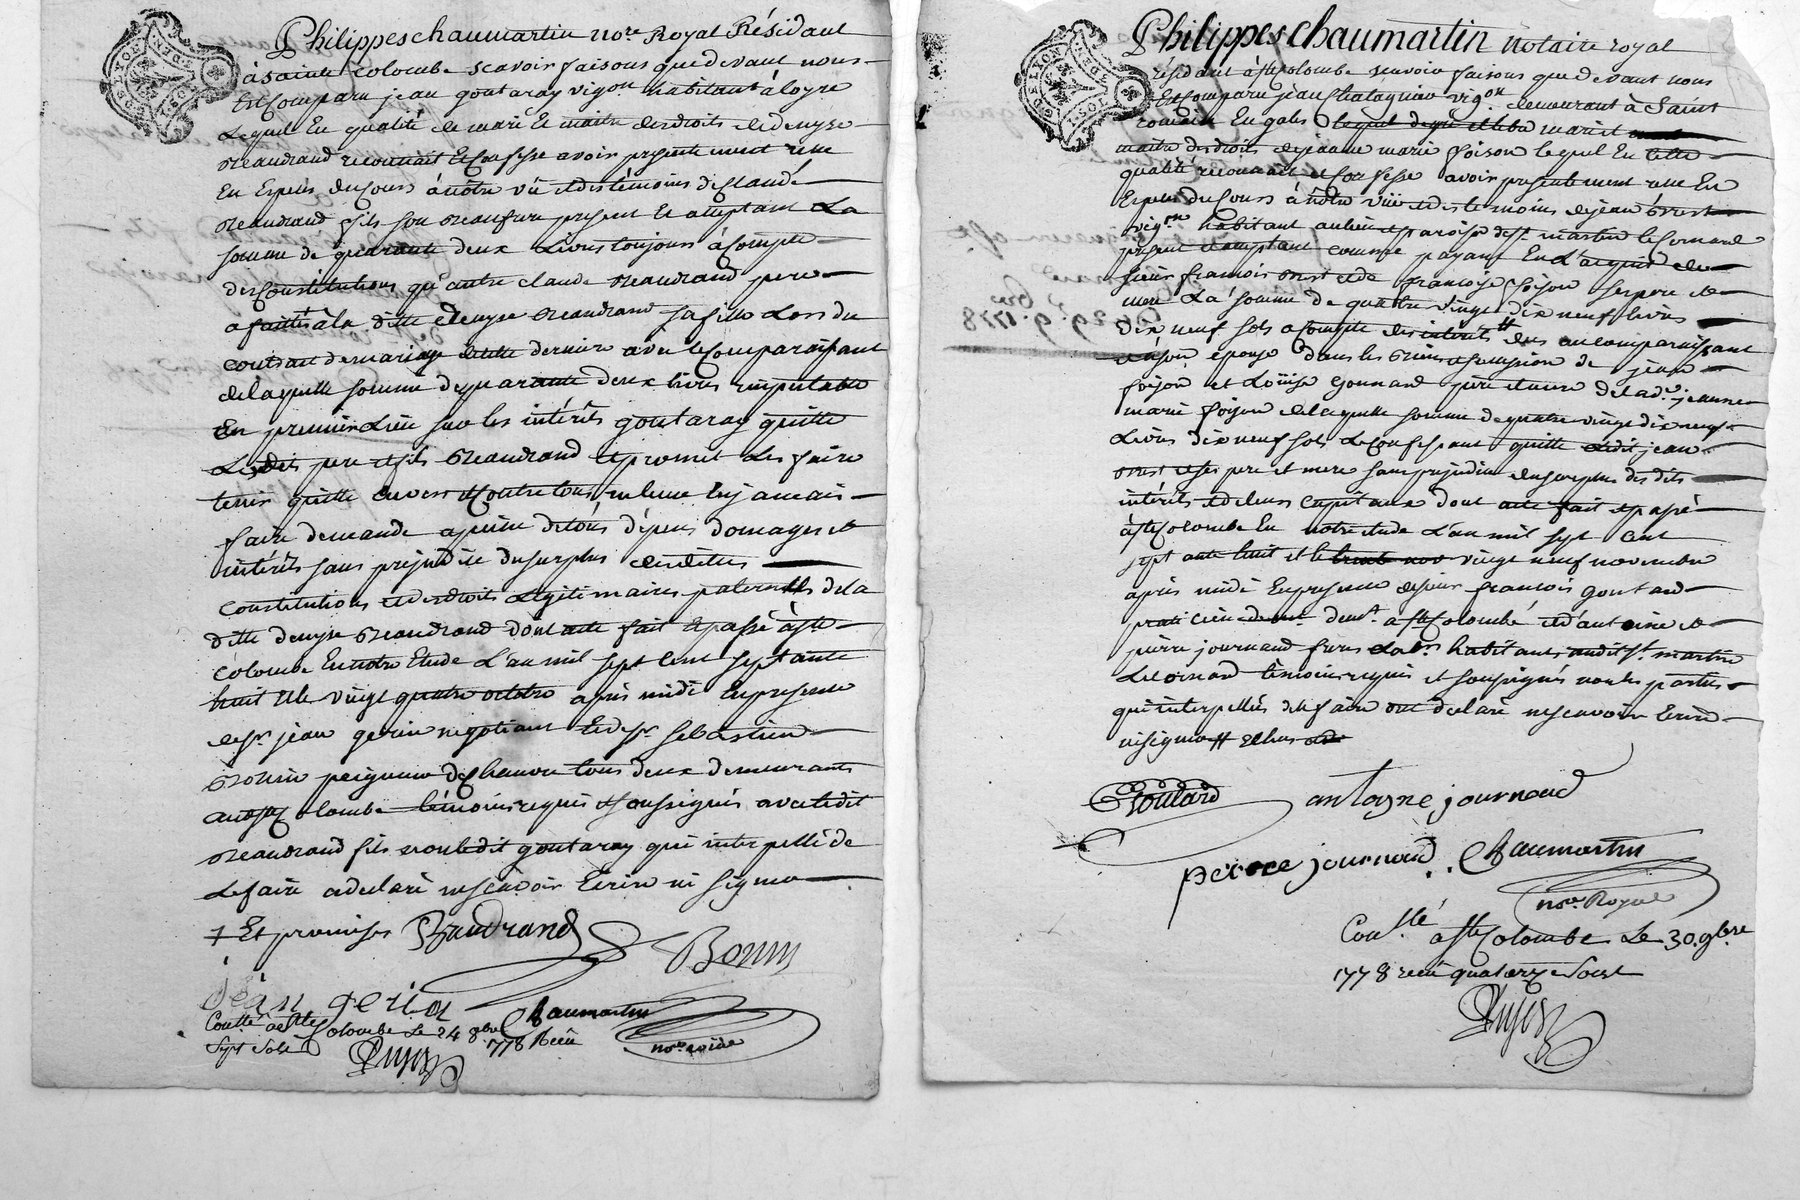 Philippes chaumartin nore Royal Résidant
à sainte Colombe scavoir faisons que devant nous
Est Comparu jean goutaray vigon habitant à loyre
Lequel En qualité de mari Et maitre des droits de denyse
Beaudrand reconnait Et Confesse avoir presentement reçu
En Espèces du Cours à nôtre vüe et des témoins de Claude
Beaudrand fils son beaufrere present Et acceptant La
somme de quarante deux Livres toujours à Compte
des Constitutions qu'autre claude Beaudrand pere
a faittes à la ditte denyse Beaudrand sa fille Lors du
contract de mariage de cette derniere avec le Comparaissant
de laquelle somme de quarante deux livres imputable
En premier Lieu sur les intérêts goutaray quitte
Lesdits pere et fils Beaudrand et promet Les faire
tenir quitte envers et Contre tous, même n'en jamais
faire demande a peine de tous dépens domages et
intérêts sans préjudice du surplus desdittes
Constitutions et des droits Légitimaires paternels de la
ditte denyse Beaudrand dont acte fait et passé à ste
Colombe En notre Etude L'an mil sept cent septante
huit et le vingt quatre octobre après midi En presence
de sr jean gerin négotiant Et de sr sebastien
Bonin peigneur de Chanvre tous deux demeurants
audit ste Colombe témoins requis et soussignés avec ledit
Beaudrand fils non ledit goutaray qui interpellé de
Le faire a declaré ne scavoir Ecrire ni signer
Et promises Baudrand
Bonin
jéan gerin
Chaumartin
Contllé à Ste Colombe Le 24 8bre 1778 Reçu
Sept Sols
nore roial
Philippes chaumartin notaire royal
résidant à ste Colombe scavoir faisons que devant nous
Est Comparu jean Chatagnier vigon demeurant à Saint
romain En gal mari et
maitre des droits de jeanne marie foison lequel En cette
qualité reconnait et Confesse avoir presentement reçu En
Espèces du Cours à nôtre vüe et des témoins de jean
vigon habitant au lieu et paroisse de st martin le Cornard
present et acceptant comme payant En L'acquit de
sieur francois et de francoise foison ses pere et
mere La somme de quatre vingt dix neuf livres
Dix neuf sols a Compte des interêts dus au comparaissant
et à son épouse dans les biens et succession de jean
foison et Loüise gounard père et mere de lade jeanne
marie foison de laquelle somme de quatre vingt dix neuf
Livres dix neuf sols Le Confessant quitte ledit jean
et ses pere et mere sans préjudice du surplus desdits
intérêts et de leurs Capitaux dont acte fait et passé
à ste Colombe En notre étude L'an mil sept cent
septante huit et le vingt neuf novembre
après midi En presence de sieur francois goutard
praticien demt à ste Colombe et d'antoine et
pierre journoud freres habitants audit st martin
Le Cornard témoins requis et soussignés non les parties
qui interpellés de le faire ont declaré ne scavoir Ecrire
ni signer
Goutard
antoyne journoud
pierre journoud
Chaumartin
nore Royal
Contllé à ste Colombe Le 30 9bre
1778 reçu quatorze sols